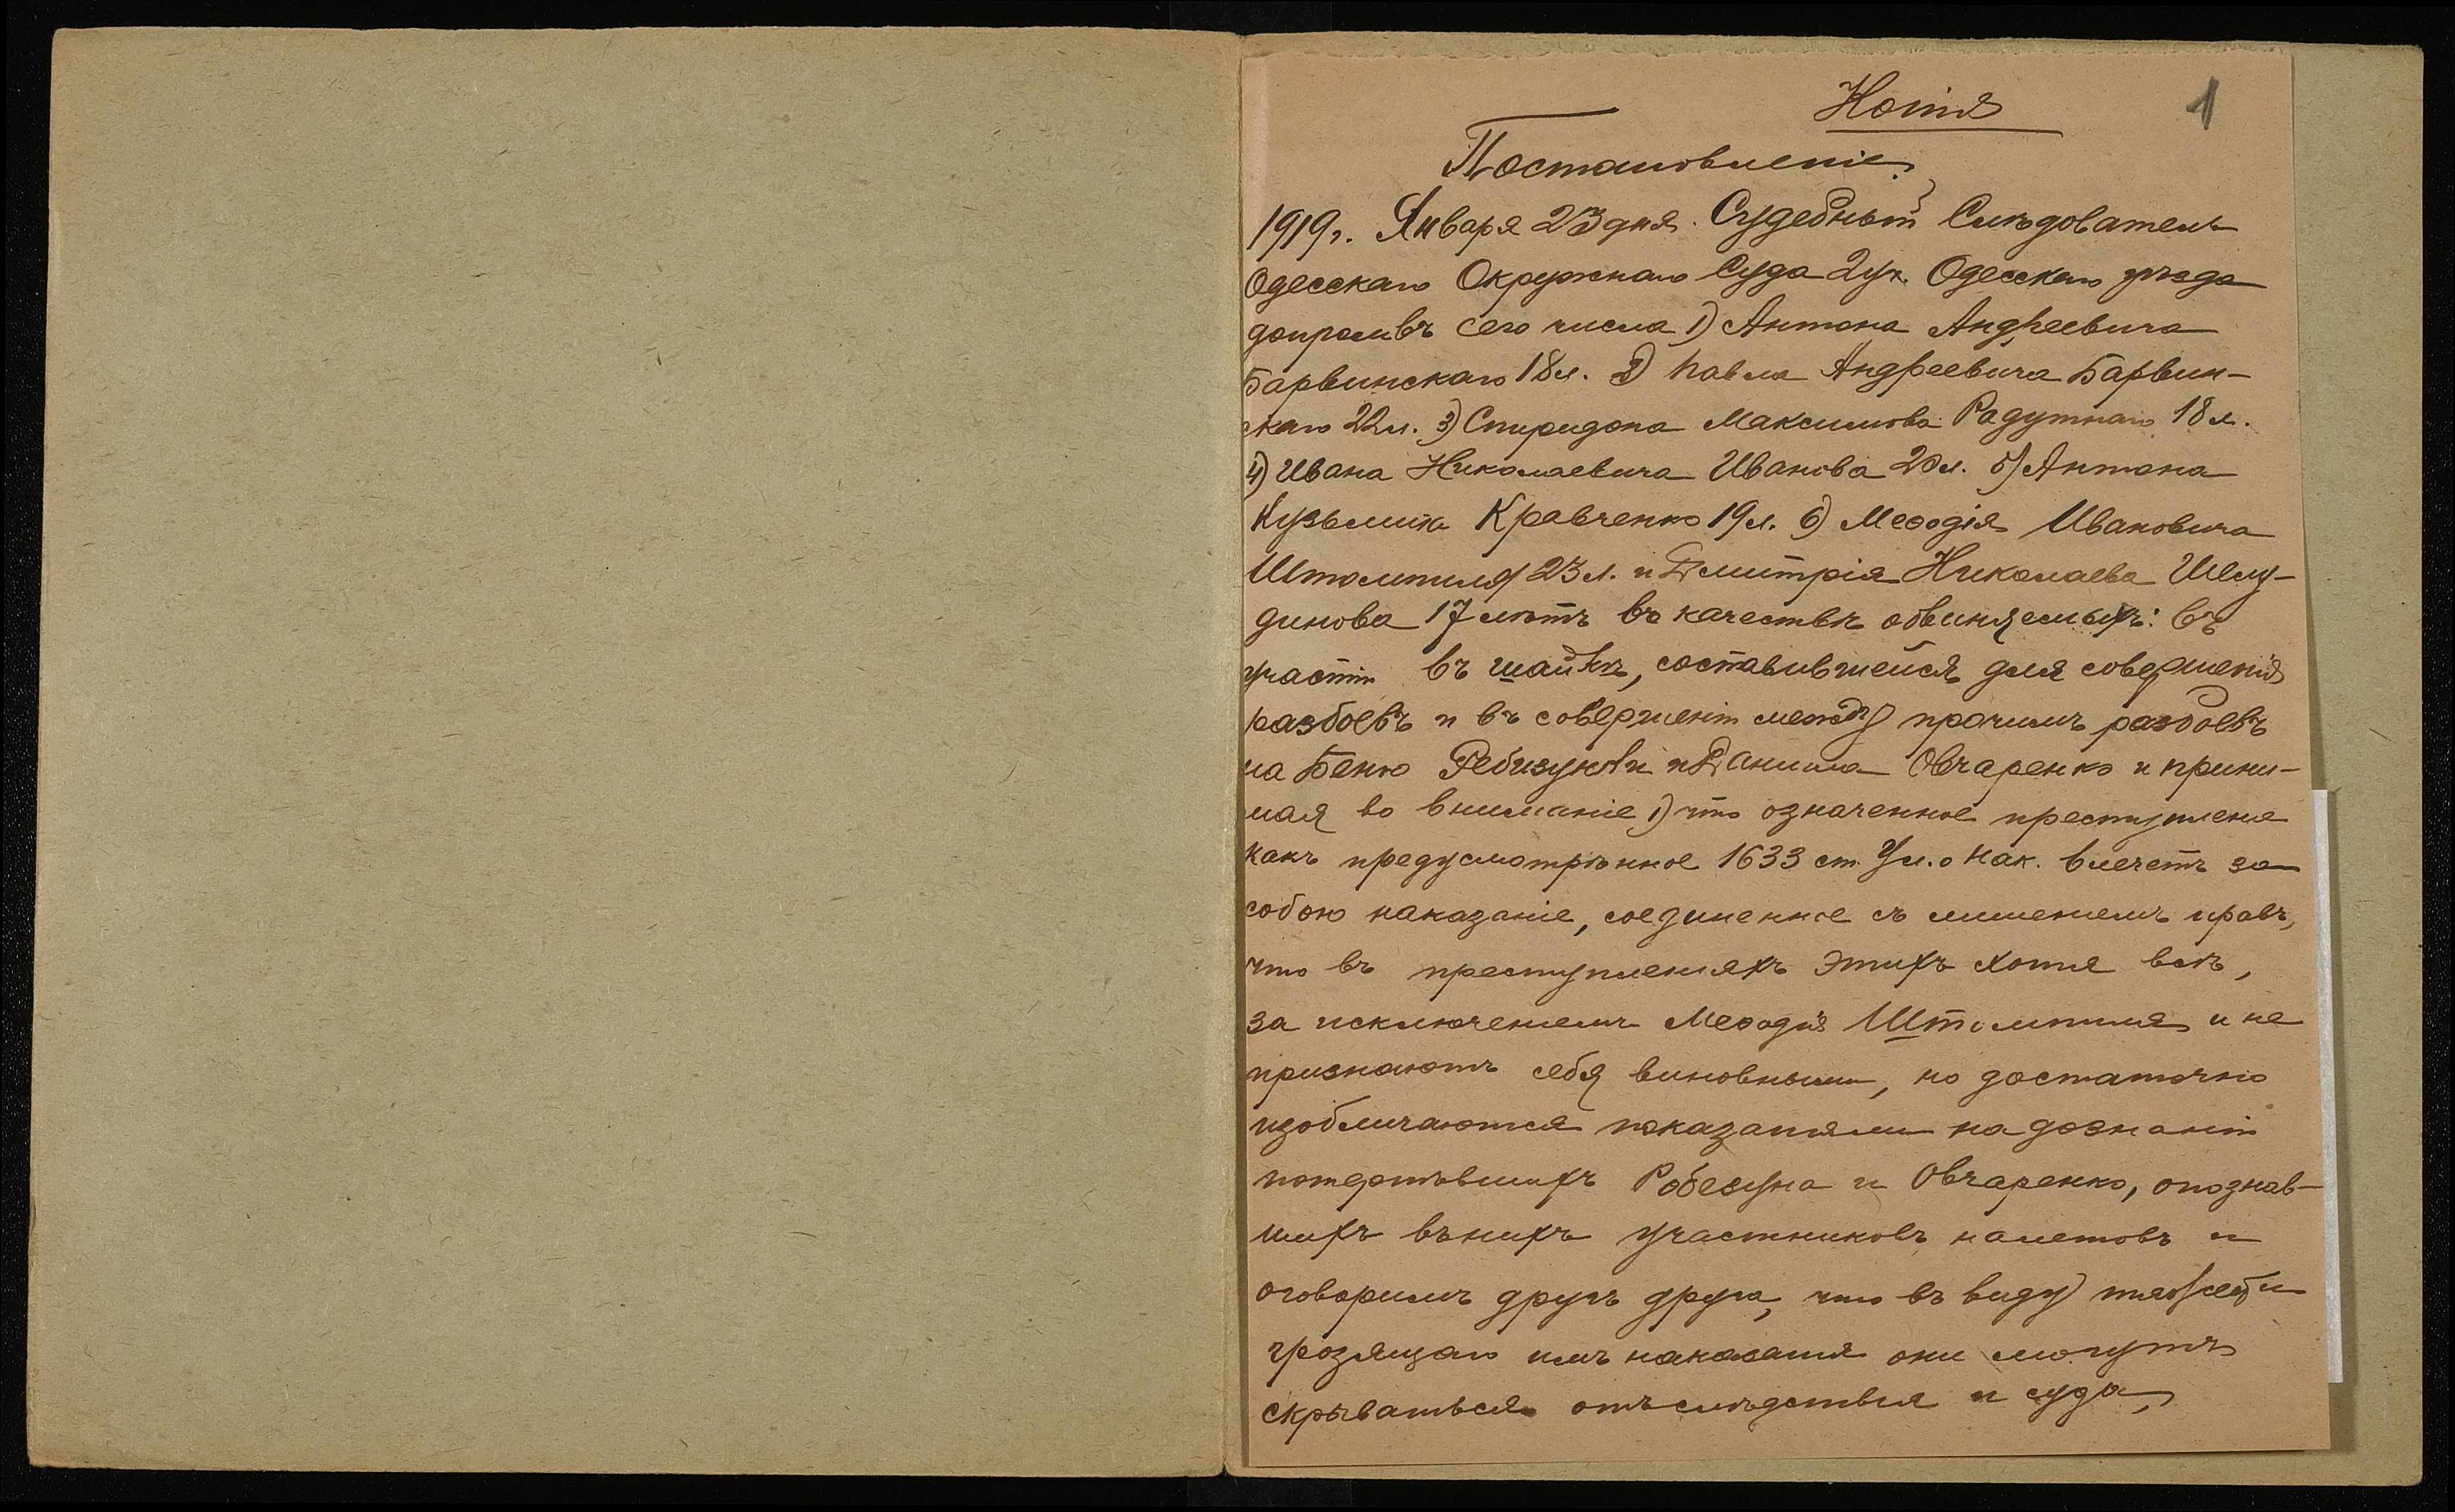 Копія
1
Постановленіе.
1919г. Января 23 дня. Судебный Слѣдователь
Одесскаго Окружнаго Суда 2 уч. Одесскаго уѣзда
допросивъ сего числа 1) Антона Андреевича
Барвинскаго 18 л. 2) Павла Андреевича Барвин-
скаго 22 л. 3) Спиридона Максимова Радутнаго 18 л.
4) Ивана Николаевича Иванова 20 л. 5) Антона
Кузьмича Кравченко 19 л. 6) Меѳодія Ивановича
23 л. и Дмитрія Николаева Шелу-
динова 17 лѣтъ въ качествѣ обвиняемыхъ: въ
участіи въ шайкѣ, составившейся для совершенія
разбоевъ и въ совершеніи между прочимъ разбоевъ
на Беню и Данила Овчаренко и прини-
мая во вниманіе 1) что означенное преступленіе
какъ предусмотрѣнное 1633 ст. Ул. о Нак. влечетъ за
собою наказаніе, соединенное съ лишеніемъ правъ,
что въ преступленіяхъ этихъ хотя всѣ,
за исключеніемъ Меѳодія и не
признаютъ себя виновными, но достаточно
изобличаются показаніями на дознаніи
потерпѣвшихъ и Овчаренко, опознав-
шихъ въ нихъ участниковъ налетовъ и
оговоримъ другъ друга, что въ виду тяжести
грозящаго имъ наказанія они могутъ
скрываться отъ слѣдствія и суда,